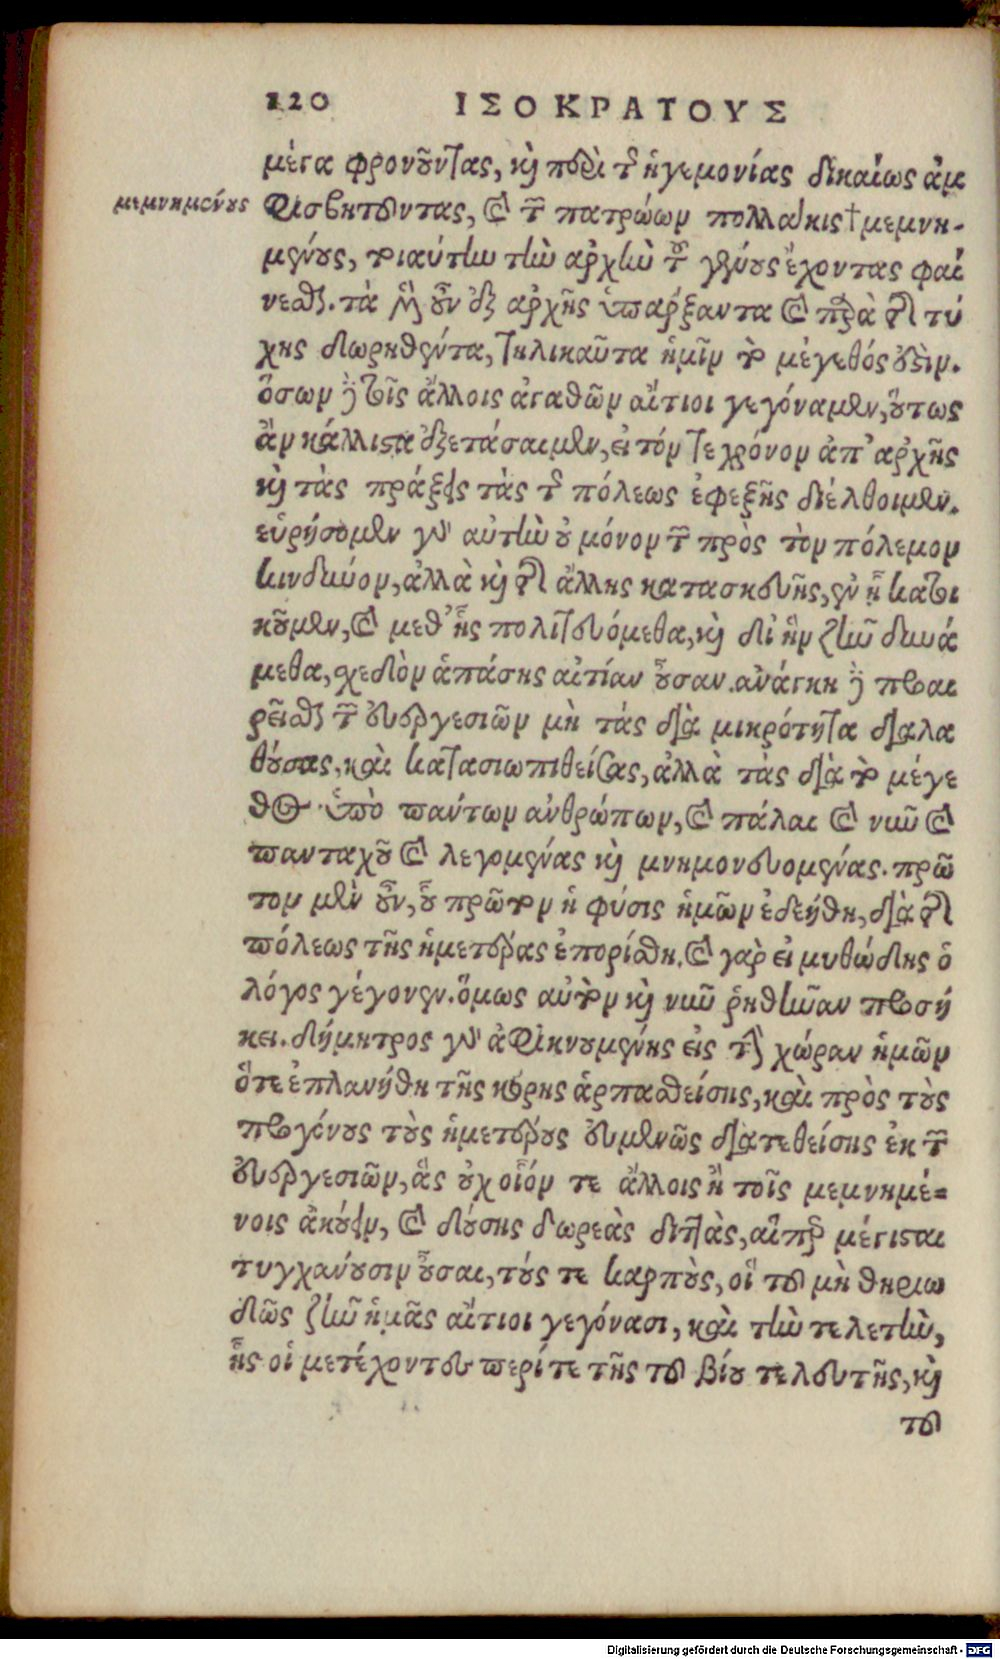 120 ΙΣΟΚΡΑΤΟΥΣ
μέγα φρονοῦντας, καὶ περὶ τῆς ἡγεμονίας δικαίως ἀμ
μεμνημένους
φισβητοῦντας, καὶ τῶν πατρώων πολλάκις † μεμνη-
μένους, τοιαύτην τὴν ἀρχὴν τοῦ γένους ἔχοντας φαί
νεσθαι. τὰ μὲν οὖν ἐξ ἀρχῆς ὑπάρξαντα καὶ παρὰ τῆς τύ
χης δωρηθέντα, τηλικαῦτα ἡμῖν τὸ μέγεθός ἐστιν.
ὅσων δὲ τοῖς ἄλλοις ἀγαθῶν αἴτιοι γεγόναμεν, οὕτως
ἂν κάλλιστα ἐξετάσαιμεν, εἰ τόν τε χρόνον ἀπ' ἀρχῆς
καὶ τὰς πράξεις τὰς τῆς πόλεως ἐφεξῆς διέλθοιμεν.
εὑρήσομεν γὰρ αὐτὴν οὐ μόνον τῶν πρὸς τὸν πόλεμον
κινδύνον, ἀλλὰ καὶ τῆς ἄλλης κατασκευῆς, ἐν ᾗ κατοι
κοῦμεν, καὶ μεθ' ἧς πολιτευόμεθα, καὶ δι' ἣν ζῆν δυνά
μεθα, σχεδὸν ἁπάσης αἰτίαν οὖσαν. ἀνάγκη δὲ προαι
ρεῖσθαι τῶν εὐεργεσιῶν μὴ τὰς διὰ μικρότητα διαλα
θούσας, καὶ κατασιωπιθείσας, ἀλλὰ τὰς διὰ τὸ μέγε
θος ὑπὸ πάντων ἀνθρώπων, καὶ πάλαι καὶ νῦν καὶ
πανταχοῦ καὶ λεγομένας καὶ μνημονευομένας. πρῶ
τον μὲν οὖν, οὗ πρῶτον ἡ φύσις ἡμῶν ἐδεήθη, διὰ τῆς
πόλεως τῆς ἡμετέρας ἐπορίσθη. καὶ γὰρ εἰ μυθώδης ὁ
λόγος γέγονεν. ὅμως αὐτὸν καὶ νῦν ῥηθῆναι προσή
κει. δήμητρος γὰρ ἀφικνουμένης εἰς τὴν χώραν ἡμῶν
ὅτε ἐπλανήθη τῆς κόρης ἁρπασθείσης, καὶ πρὸς τοὺς
προγόνους τοὺς ἡμετέρους εὐμενῶς διατεθείσης ἐκ τῶν
εὐεργεσιῶν, ἃς οὐχ οἷόν τε ἄλλοις ἢ τοῖς μεμνημέ=
νοις ἀκούειν, καὶ δούσης δωρεὰς διττὰς, αἵπερ μέγισται
τυγχάνουσιν οὖσαι, τούς τε καρποὺς, οἳ τοῦ μὴ θηριω
δῶς ζῆν ἡμᾶς αἴτιοι γεγόνασι, καὶ τὴν τελετὴν,
ἧς οἱ μετέχοντες περί τε τῆς τοῦ βίου τελευτῆς, καὶ
τοῦ
Digitalisierung gefördert durch die Deutsche Forschungsgemeinschaft - DFG